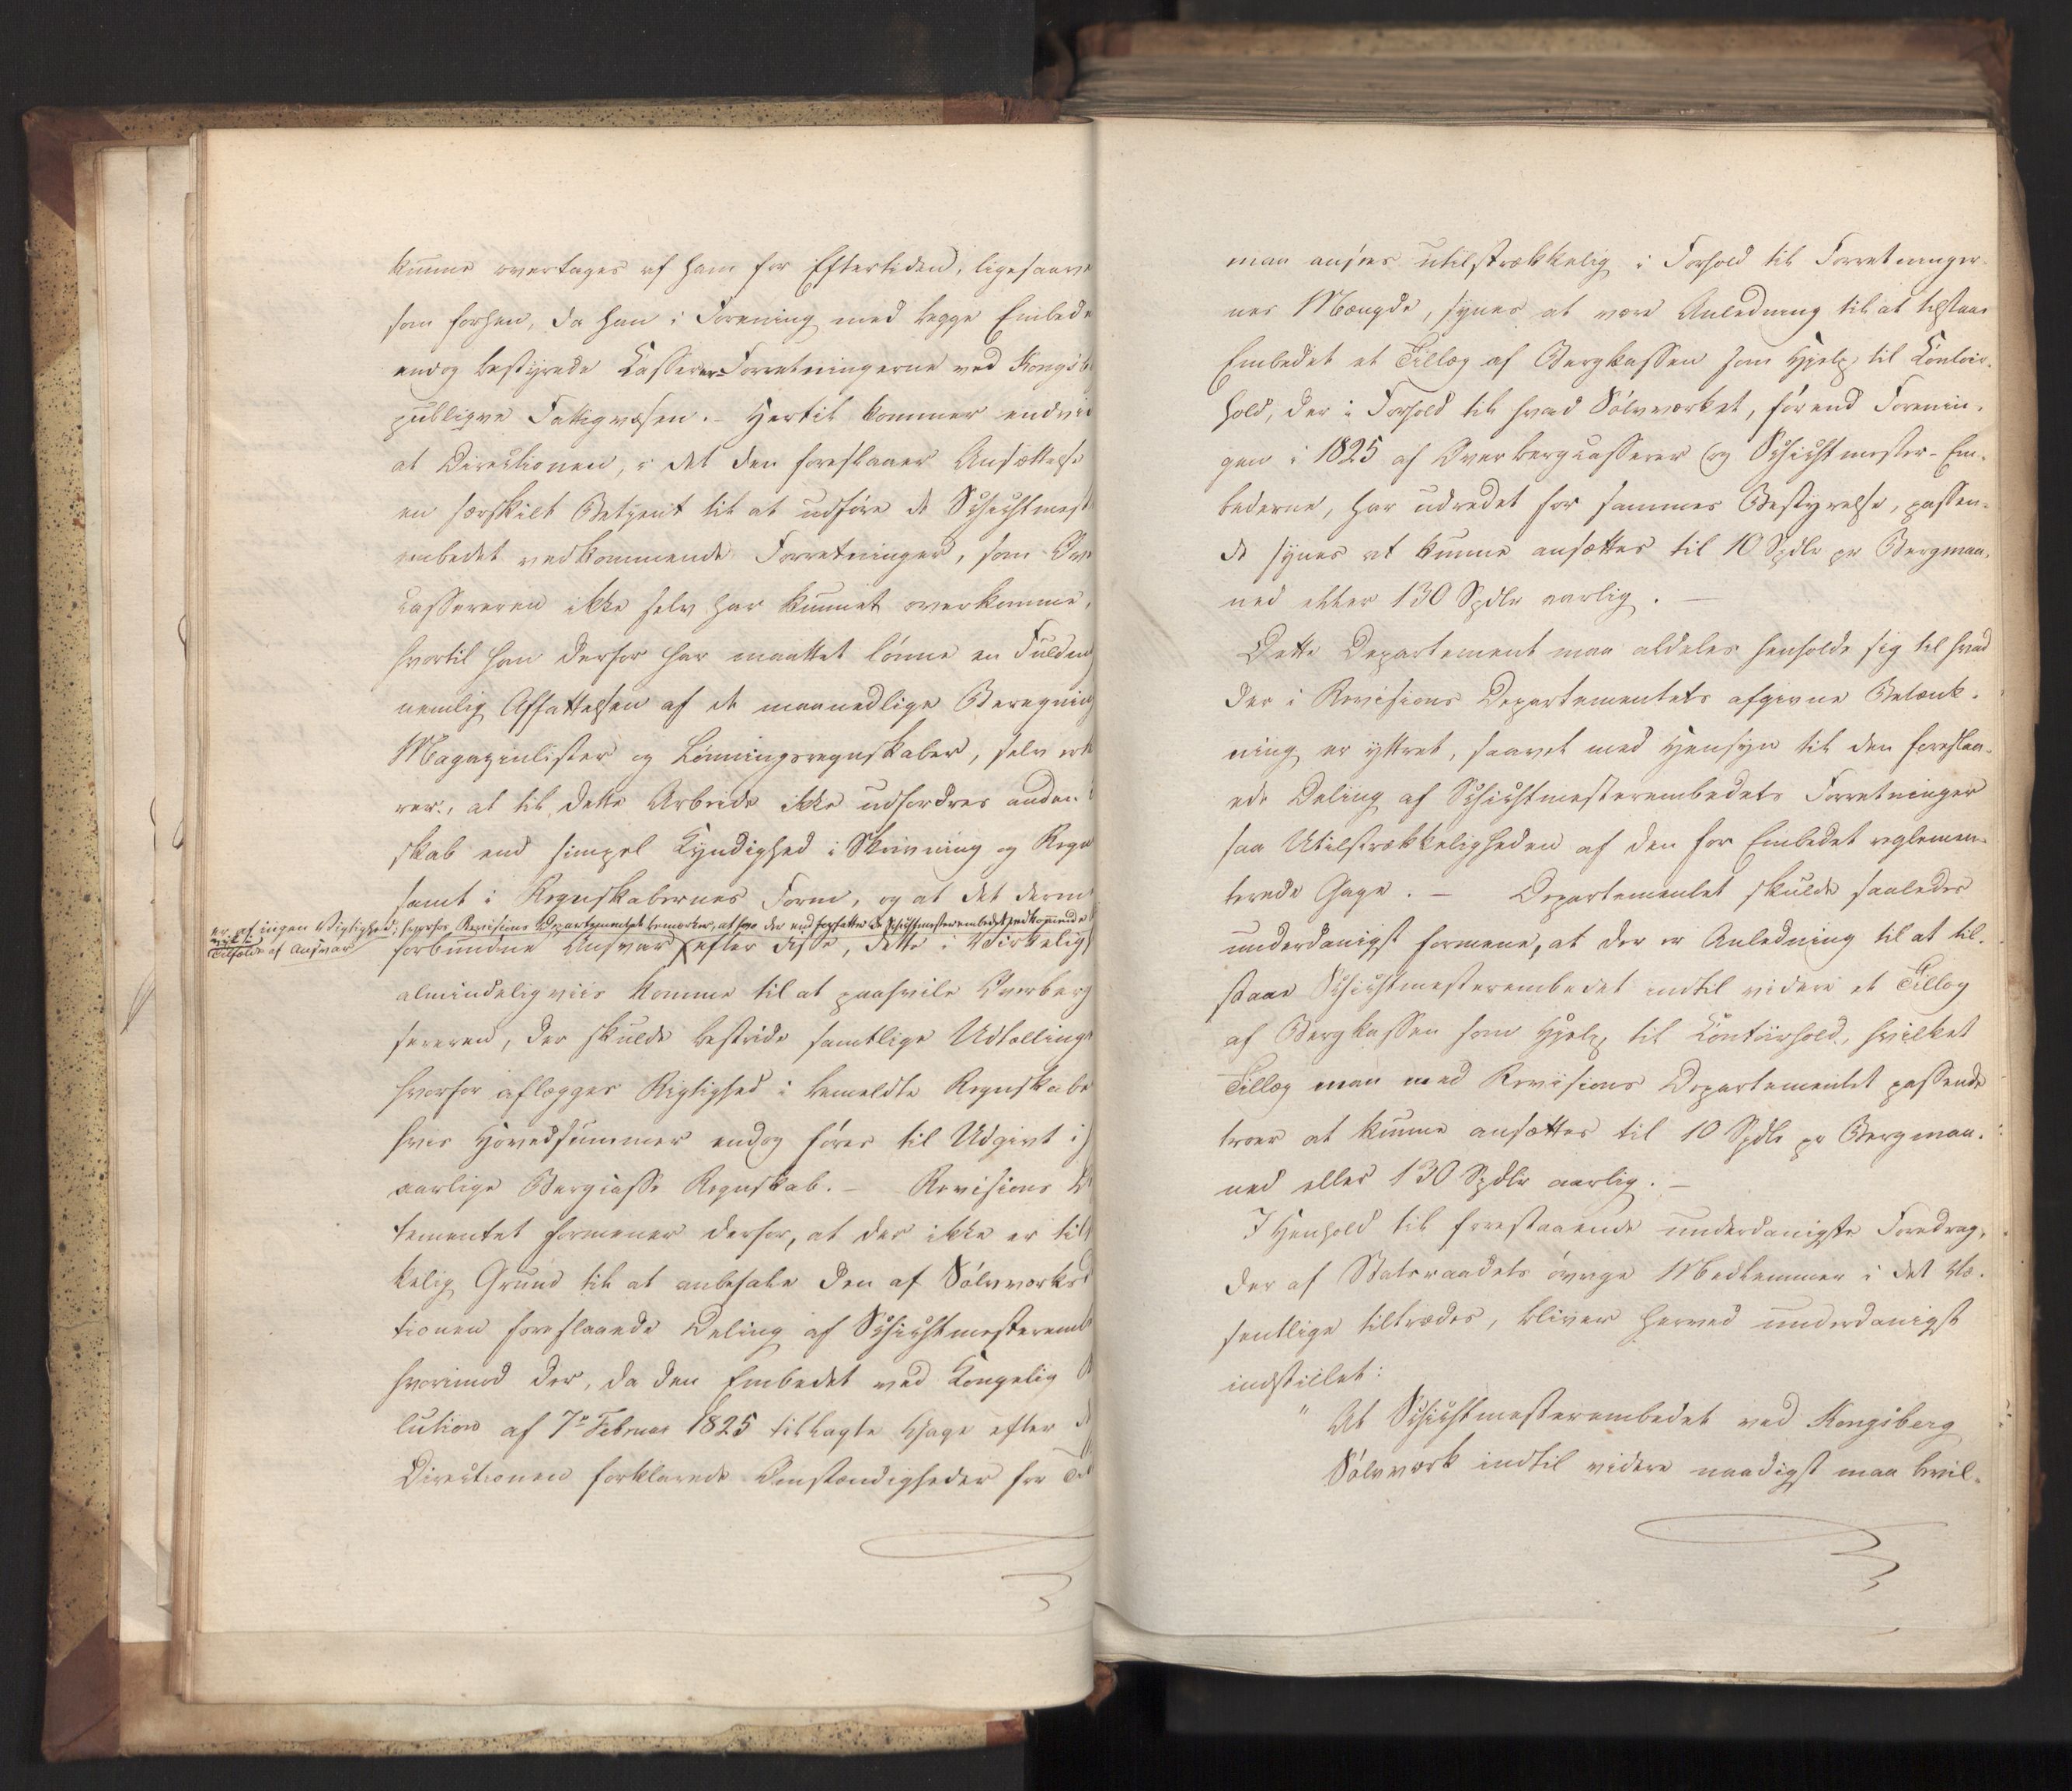 kunne overtages af ham for Eftertiden, ligesaave
som forhen, da han i Forening med begge Embede
endog bestyrede Casserer-Forretningerne ved Kongsb
publiqve Fattigvæsen. - Hertil kommer endvi
at Directionen, i det den foreslaaer Ansættelse
en særskilt Betjent til at udføre de Schichtmest
embedet vedkommende Forretninger, som Ove
casseren ikke selv har kunnet overkomme,
hvortil han derfor har maattet lønne en Fuldm
nemlig Affattelsen af de maanedlige Beregning
Magazinlister og Lønningsregnskaber, selv erk
rer, at til dette Arbeide ikke udfordres anden
skab end simpel Kyndighed i Skrivning og Regn
samt i Regnskabernes Form, og at det derm
er af ingen Vigtighed, hvorfor Revisions Departementet bemærker, at hvo der end forfatter de Schichtmesterembedet vedkommende
Tilfælde af Ansvar
forbundne Ansvar efter disse, dette i Virkeligh
almindeligviis komme til at paahvile Overberg
sereren, der skulde bestride samtlige Udtællinge
hvorfor aflægges Rigtighed i bemeldte Regnskabe
hvis Hovedsummer endog føres til Udgivt i
aarlige Bergcasse Regnskab. - Revisions D
tementet formener derfor, at der ikke er tils
kelig Grund til at anbefale den af Sølvværksd
tionen foreslaaede Deling af Schichtmesteremb
hvorimod der, da den Embedet ved Kongelig
lution af 7de Februar 1825 tillagte Gage efter d
Directionen forklarede Omstændigheder for Til
maa ansees utilstrækkelig i Forhold til Forretninger-
nes Mængde, synes at være Anledning til at tilstaae
Embedet et Tillæg af Bergkassen som Hjelp til Contoir-
hold, der i Forhold til hvad Sølvværket, førend Forenin-
gen i 1825 af Overbergcasserer og Schichtmester-Em-
bederne, har udredet for sammes Bestyrelse, passen-
de synes at kunne ansættes til 10 Spdlr pr Bergmaa-
ned eller 130 Spdlr aarlig. -
Dette Departement maa aldeles henholde sig til hvad
der i Revisions Departementets afgivne Betænk-
ning er yttret, saavel med Hensyn til den foreslaa-
ede Deling af Schichtmesterembedets Forretninger
saa Utilstrækkeligheden af den for Embedet reglemen-
terede Gage. - Departementet skulde saaledes
underdanigst formene, at der er Anledning til at til-
staae Schichtmesterembedet indtil videre et Tillæg
af Bergkassen som Hjelp til Contoirhold, hvilket
Tillæg man med Revisions Departementet passende
troer at kunne ansættes til 10 Spdlr pr Bergmaa-
ned eller 130 Spdlr aarlig. -
I Henhold til forestaaende underdanigste Foredrag,
der af Statsraadets øvrige Medlemmer i det Væ-
sentlige tiltrædes, bliver herved underdanigst
indstillet:
"At Schichtmesterembedet ved Kongsberg
Sølvværk indtil videre naadigst maa bevil-